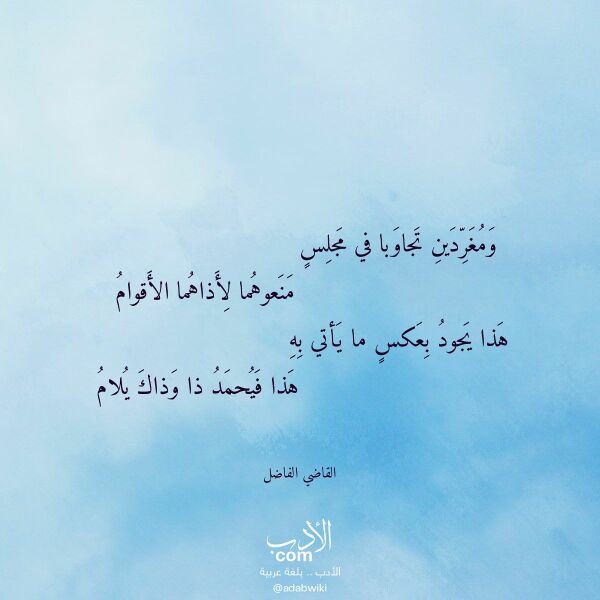 وَمُغَرِّدَينِ تَجاوَبا في مَجلِسٍ
مَنَعوهُما لِأَذاهُما الأَقوامُ
هَذا يَجودُ بِعَكسٍ ما يَأتي بِهِ
هَذا فَيُحمَدُ ذا وَذاكَ يُلامُ
القاضي الفاضل
الأدب
com
الأدب .. بلغة عربية
@adabwiki